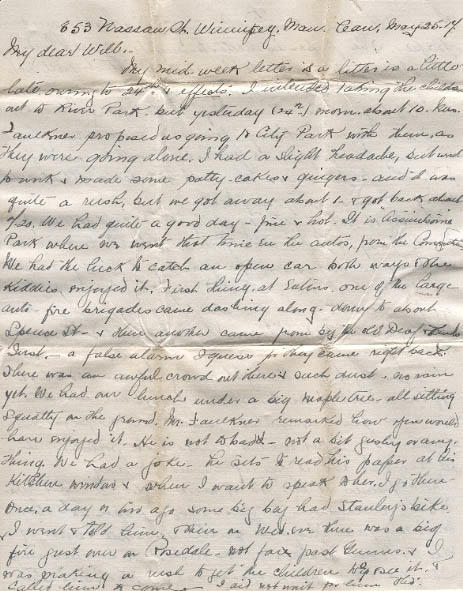 853 Nassau St. Winnipeg, Man. Can, May 25-17
My dear Will:-
My mid week letter is a little is a little
late owing to 24th & effects. I intended taking the children
out to River Park. but yesterday (24th) morn. about 10. Mrs.
Faulkner proposed us going to City Park with them, as
they were going alone. I had a slight headache, but went
to work & made some patty-cakes & gingers - and it was
quite a rush, but we got away about 1 - & got back about
/20. We had quite a good day - fine & hot. It is Assiniboine
Park where we went that time in the autos, from the
We had the luck to catch an open car both ways & the
kiddies enjoyed it. First thing, at one of the large
auto fire brigades came dashing along - down to about
Spence St - & then another came from by the Deaf &
Inst. - a false alarm I guess for they came right back.
There was an awful crowd out there & such dust - no rain
yet. We had our lunch under a big maple tree - all sitting
squatty on the ground. Mr. Faulkner remarked how you would
have enjoyed it. He is not so bad - not a bit gushy or any-
thing. We had a joke - he sits to read his paper at his
kitchen window & when I want to speak to her, I go there.
Once, a day or two ago some big boy had Stanley's bike
I went & told him, & then on Wed. eve there was a big
fire just over on Rosedale - not far past & I
was making a rush to get the children to see it &
called him to come - I did not wait for him tho'